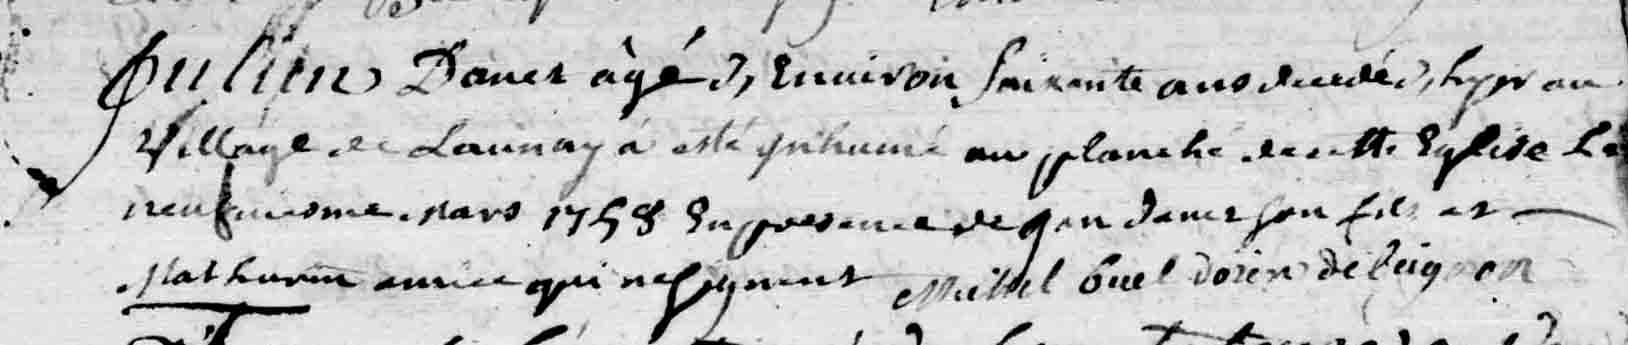 Julien Danet âgé d'environ soixante ans decedé d'hyer au
Village de Launay á esté inhumé au planché de cette Eglise le
neufuiesme mars 1758 En presence de jan danet son fils et
Mathurin amice qui ne signent Michel